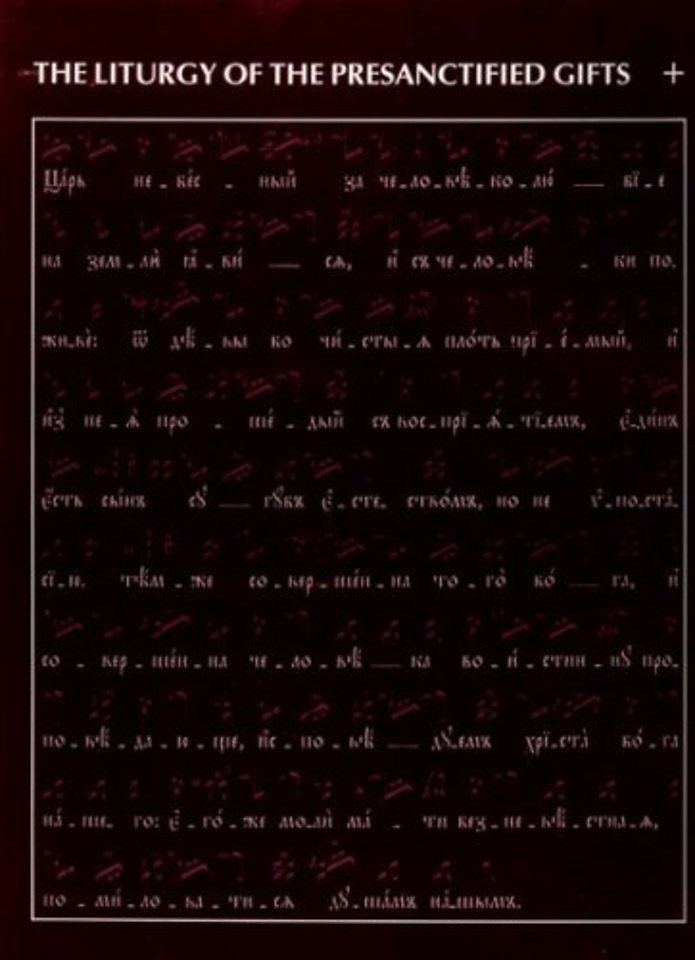 THE LITURGY OF THE PRESANCTIFIED GIFTS +
Ца́рь не - бе́с - ный за че - ло - вѣ - ко - лю́ — бї - е
на зем - лѝ ꙗ - ви́ — сѧ, и҆ съ че - ло - вѣ́ - ки по -
жи - вѐ: ѿ дѣ́ - вы бо чи́ - сты - ѧ пло́ть прї - е́ - мый, и҆
и҆з̾ не - ѧ̀ про - ше́ - дый съ вос - прї - ѧ́ - тї - емъ, є҆ди́нъ
є҆́сть сы́нъ сꙋ — гꙋ́бъ є҆ - сте - ство́мъ, но не ѵ҆ - по - ста́ -
сї - ю. тѣ́м - же со - вер - ше́н - на то - го̀ бо́ — га, и҆
со - вер - ше́н - на че - ло - вѣ́ — ка во - и́ - стин - нꙋ про -
по - вѣ́ - да - ю - ще, и҆с - по - вѣ́ — дꙋ - емъ хрї - ста̀ бо́ - га
на́ - ше - го: є҆ - го́ - же мо - лѝ ма́ - ти без - не - вѣ́ - стна - ѧ,
по - ми́ - ло - ва - ти - сѧ дꙋ - ша́мъ на́ - шымъ.